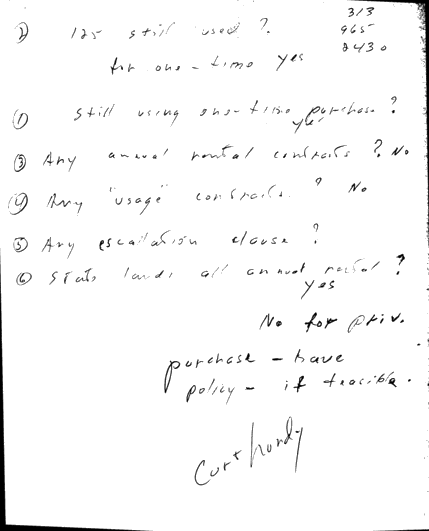 313
965
2430
② 125 still used ?
for one-time yes
① Still using one-time purchase ?
yes
③ Any annual rental contracts ? No
④ Any "usage" contracts. ? No
⑤ Any escalation clause ?
⑥ State lands all annual rental ?
yes
No for priv.
purchase - have
policy - if feacible.